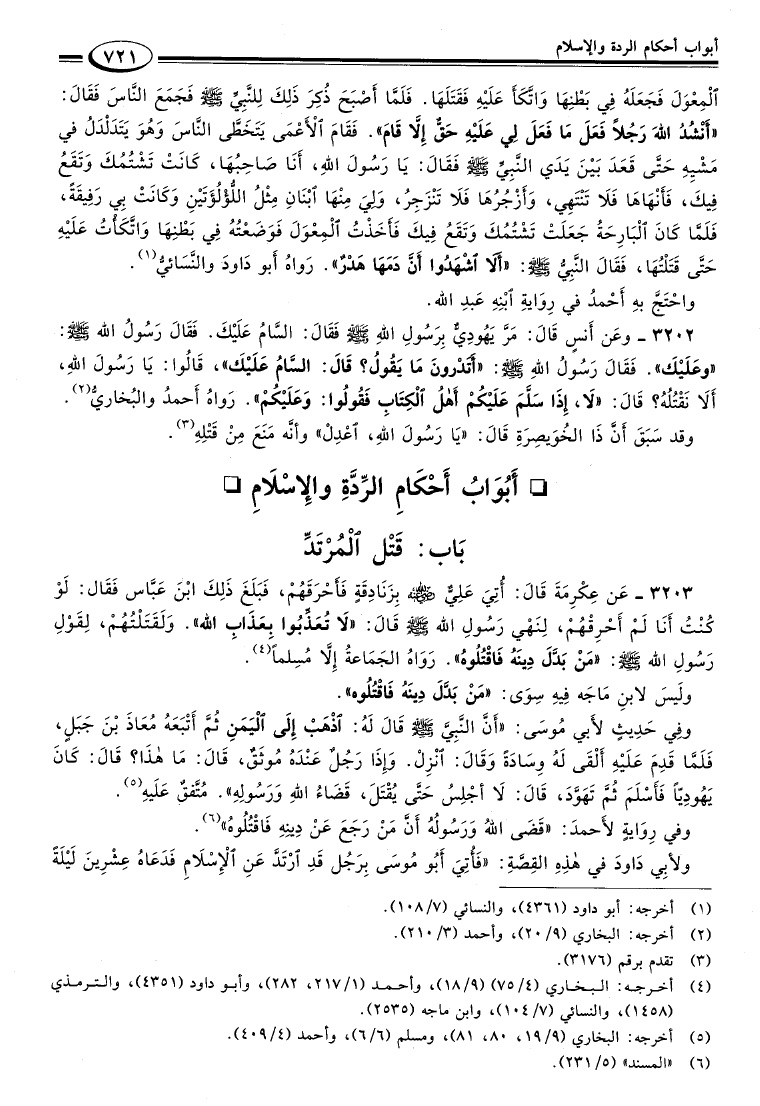 أبواب أحكام الردة والإسلام
٧٢١
ٱلْمِعْوَلَ فَجَعَلَهُ فِي بَطْنِهَا وَاتَّكَأَ عَلَيْهِ فَقَتَلَهَا. فَلَمَّا أَصْبَحَ ذُكِرَ ذَلِكَ لِلنَّبِيِّ ﷺ فَجَمَعَ النَّاسَ فَقَالَ:
«أَنْشُدُ اللهَ رَجُلاً فَعَلَ مَا فَعَلَ لِي عَلَيْهِ حَقٌّ إِلَّا قَامَ». فَقَامَ الْأَعْمَى يَتَخَطَّى النَّاسَ وَهُوَ يَتَدَلْدَلُ في
مَشْيِهِ حَتَّى قَعَدَ بَيْنَ يَدَي النَّبِيِّ ﷺ فَقَالَ: يَا رَسُولَ اللهِ، أَنَا صَاحِبُهَا، كَانَتْ تَشْتُمُكَ وَتَقَعُ
فِيكَ، فَأَنْهَاهَا فَلَا تَنْتَهِي، وَأَزْجُرُهَا فَلَا تَنْزَجِرُ، وَلِيَ مِنْهَا ٱبْنَانِ مِثْلُ اللُّؤْلُؤَتَيْنِ وَكَانَتْ بِي رَفِيقَةً،
فَلَمَّا كَانَ ٱلْبَارِحَةُ جَعَلَتْ تَشْتُمُكَ وَتَقَعُ فِيكَ فَأَخَذْتُ ٱلْمِعْوَلَ فَوَضَعْتُهُ فِي بَطْنِهَا وَاتَّكَأْتُ عَلَيْهِ
حَتَّى قَتَلْتُهَا، فَقَالَ النَّبِيُّ ﷺ: «أَلَا ٱشْهَدُوا أَنَّ دَمَهَا هَدْرٌ». رَوَاهُ أبو دَاودَ والنَّسَائيُّ(١).
واحْتَجَّ بِهِ أَحْمدُ في رِوَايَةِ ٱبْنِهِ عَبدِ الله.
٣٢٠٢ ـ وعَن أَنسٍ قَالَ: مَرَّ يَهُودِيٌّ بِرَسُولِ اللهِ ﷺ فَقَالَ: السَّامُ عَلَيْكَ. فَقَالَ رَسُولُ الله ﷺ:
«وعَلَيْكَ». فَقَالَ رَسُولُ اللهِ ﷺ: «أَتَدْرُونَ مَا يَقُولُ؟ قَالَ: السَّامُ عَلَيْكَ»، قَالُوا: يَا رَسُولَ اللهِ،
أَلَا نَقْتُلُهُ؟ قَالَ: «لَا، إِذَا سَلَّمَ عَلَيْكُمْ أَهْلُ ٱلْكِتَابِ فَقُولُوا: وَعَلَيْكُمْ». رَواهُ أَحمدُ والبُخاريُّ(٢).
وقد سَبَقَ أَنَّ ذَا الخُوَيصِرَةِ قَالَ: «يَا رَسُولَ اللهِ، ٱعْدِلْ» وأنَّه مَنَعَ مِنْ قَتْلِهِ(٣).
❏ أَبْوَابُ أَحْكَامِ الرِّدَّةِ والإِسْلَامِ ❏
بَاب: قَتْل ٱلْمُرْتَدِّ
٣٢٠٣ ـ عَن عِكْرِمَةَ قَالَ: أُتِيَ عَلِيٌّ ﷺ بِزَنَادِقَةٍ فَأَحْرَقَهُمْ، فَبَلَغَ ذَلِكَ ابْنَ عَبَّاسٍ فَقَالَ: لَوْ
كُنْتُ أَنَا لَمْ أُحْرِقْهُمْ، لِنَهْيِ رَسُولِ الله ﷺ قَالَ: «لَا تُعَذِّبُوا بِعَذَابِ الله». وَلَقَتَلْتُهُمْ، لِقَوْلِ
رَسُولِ الله ﷺ: «مَنْ بَدَّلَ دِينَهُ فَاقْتُلُوهُ». رَوَاهُ الجَماعَةُ إِلَّا مُسلِماً(٤).
ولَيسَ لابنِ مَاجَه فِيهِ سِوَى: «مَنْ بَدَّلَ دِينَهُ فَاقْتُلُوه».
وفي حَدِيثٍ لأَبي مُوسَى: «أَنَّ النَّبِيَّ ﷺ قَالَ لَهُ: اَذْهَبْ إِلَى ٱلْيَمَنِ ثُمَّ أَتْبَعَهُ مُعَاذَ بْنَ جَبَلٍ،
فَلَمَّا قَدِمَ عَلَيْهِ أَلْقَى لَهُ وِسَادَةً وَقَالَ: ٱنْزِلْ. وَإِذَا رَجُلٌ عَنْدَهُ مُوثَقٌ، قَالَ: مَا هٰذَا؟ قَالَ: كَانَ
يَهُودِيّاً فَأَسْلَمَ ثُمَّ تَهَوَّدَ، قَالَ: لَا أَجْلِسُ حَتَّى يُقْتَلَ، قَضَاءُ اللهِ وَرَسُولِهِ». مُتَّفقٌ عَلَيهِ(٥).
وفي رِوَايةٍ لأَحمدَ: «قَضَى اللهُ وَرَسُولُهُ أَنَّ مَنْ رَجَعَ عَنْ دِينِهِ فَاقْتُلُوهُ»(٦).
ولأبي دَاودَ في هٰذِهِ القِصَّةِ: «فَأُتِيَ أَبُو مُوسَى بِرَجُلٍ قَدِ ٱرْتَدَّ عَنِ ٱلْإِسْلَامِ فَدَعَاهُ عِشْرِينَ لَيْلَةً
(١) أخرجه: أبو داود (٤٣٦١)، والنسائي (١٠٨/٧).
(٢) أخرجه: البخاري (٢٠/٩)، وأحمد (٢١٠/٣).
(٣) تقدم برقم (٣١٧٦).
(٤) أخرجه: البخاري (٧٥/٤) (١٨/٩)، وأحمد (٢١٧/١، ٢٨٢)، وأبو داود (٤٣٥١)، والترمذي
(١٤٥٨)، والنسائي (١٠٤/٧)، وابن ماجه (٢٥٣٥).
(٥) أخرجه: البخاري (١٩/٩، ٨٠، ٨١)، ومسلم (٦/٦)، وأحمد (٤٠٩/٤).
(٦) «المسند» (٢٣١/٥).